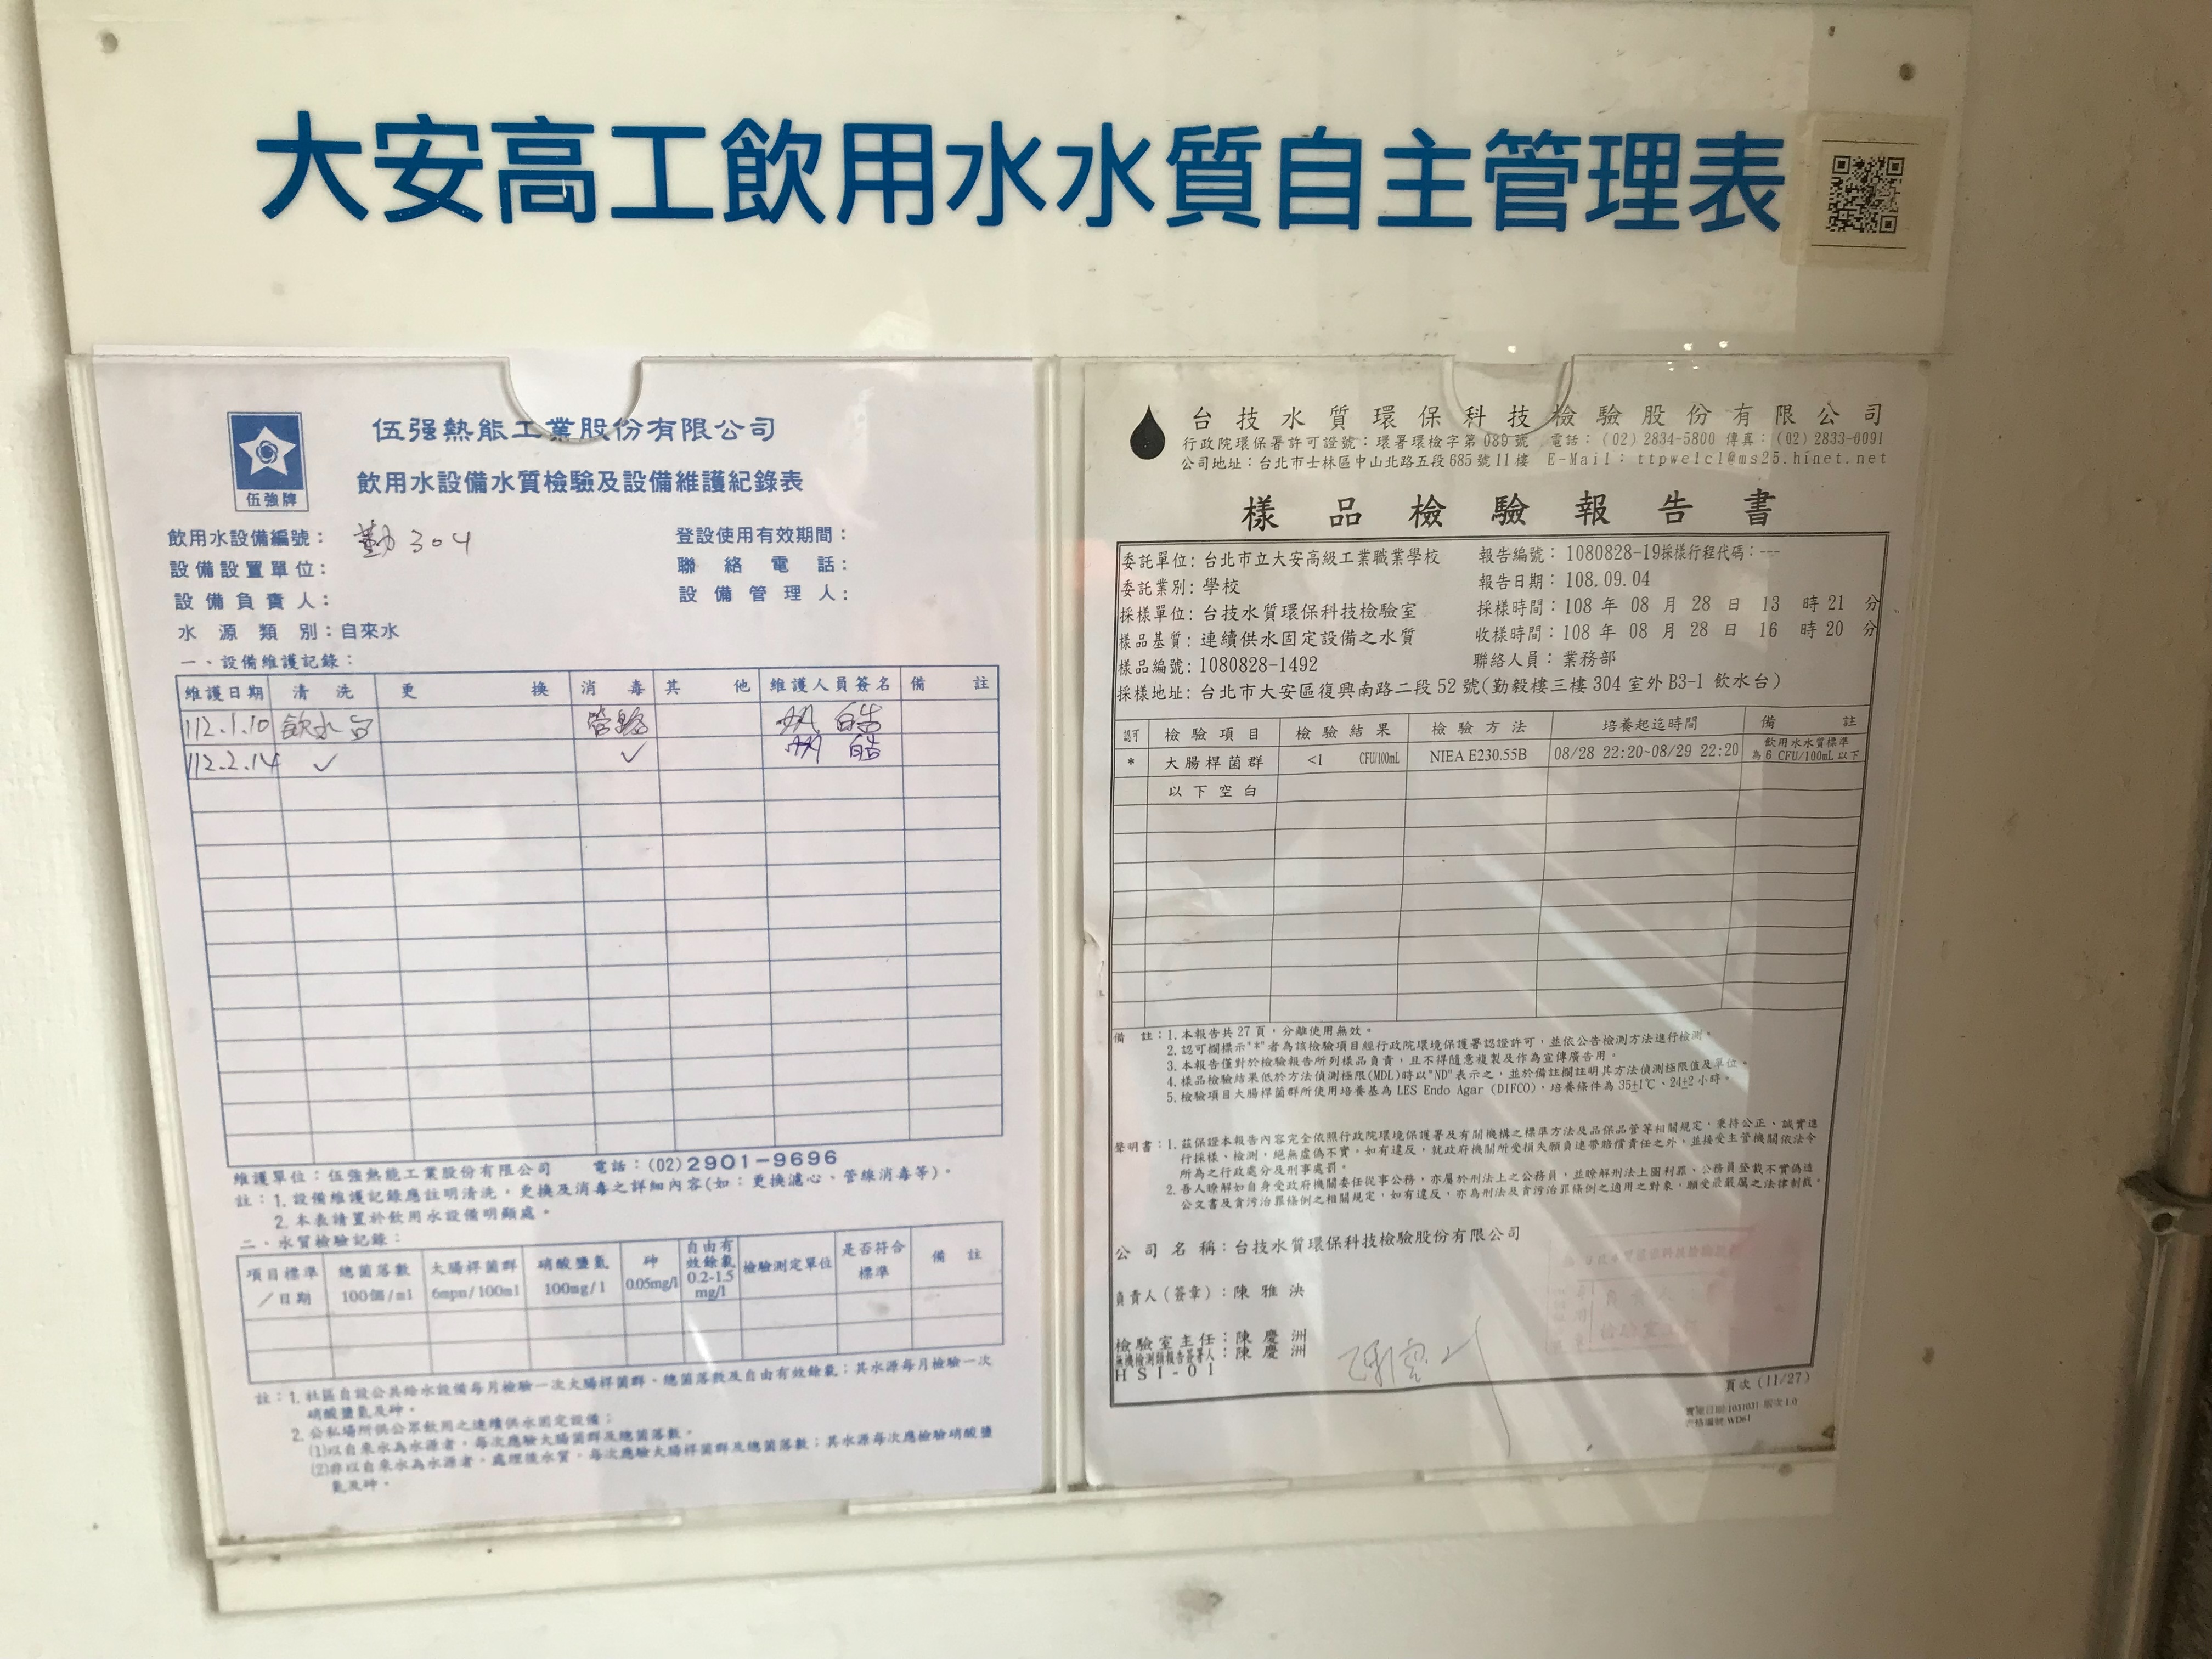 大安高工飲用水水質自主管理表
伍强熱能工業股份有限公司
飲用水設備水質檢驗及設備維護紀錄表
伍強牌
飲用水設備編號： 勤304
登設使用有效期間：
設備設置單位：
聯絡電話：
設備負責人：
設備管理人：
水源類別：自來水
一、設備維護記錄：
維護日期 清洗 更換 消毒 其他 維護人員簽名 備註
112.1.10 飲水台 管路 皓
112.2.14 ✓ ✓ 皓
維護單位：伍强熱能工業股份有限公司 電話：(02)2901-9696
註：1. 設備維護記錄應註明清洗，更換及消毒之詳細內容(如：更換濾心、管線消毒等)。
2. 本表請置於飲用水設備明顯處。
二、水質檢驗記錄：
項目標準／日期 總菌落數100個/ml 大腸桿菌群6mpn/100ml 硝酸鹽氮100mg/l 砷0.05mg/l 自由有效餘氯0.2-1.5mg/l 檢驗測定單位 是否符合標準 備註
註：1. 社區自設公共給水設備每月檢驗一次大腸桿菌群、總菌落數及自由有效餘氯；其水源每月檢驗一次
硝酸鹽氮及砷。
2. 公私場所供公眾飲用之連續供水固定設備；
(1)以自來水為水源者，每次應驗大腸菌群及總菌落數。
(2)非以自來水為水源者，處理後水質，每次應驗大腸桿菌群及總菌落數；其水源每次應檢驗硝酸鹽
氮及砷。
台技水質環保科技檢驗股份有限公司
行政院環保署許可證號：環署環檢字第089號 電話：(02)2834-5800 傳真：(02)2833-0091
公司地址：台北市士林區中山北路五段685號11樓 E-Mail：ttpwe1cl@ms25.hinet.net
樣品檢驗報告書
委託單位：台北市立大安高級工業職業學校 報告編號：1080828-19採樣行程代碼：---
委託業別：學校 報告日期：108.09.04
採樣單位：台技水質環保科技檢驗室 採樣時間：108年08月28日13時21分
樣品基質：連續供水固定設備之水質 收樣時間：108年08月28日16時20分
樣品編號：1080828-1492 聯絡人員：業務部
採樣地址：台北市大安區復興南路二段52號(勤毅樓三樓304室外B3-1飲水台)
認可 檢驗項目 檢驗結果 檢驗方法 培養起迄時間 備註
* 大腸桿菌群 <1 CFU/100mL NIEA E230.55B 08/28 22:20~08/29 22:20 飲用水水質標準為6 CFU/100mL以下
以下空白
備註：1. 本報告共27頁，分離使用無效。
2. 認可欄標示"*"者為該檢驗項目經行政院環境保護署認證許可，並依公告檢測方法進行檢測。
3. 本報告僅對於檢驗報告所列樣品負責，且不得隨意複製及作為宣傳廣告用。
4. 樣品檢驗結果低於方法偵測極限(MDL)時以"ND"表示之，並於備註欄註明其方法偵測極限值及單位。
5. 檢驗項目大腸桿菌群所使用培養基為LES Endo Agar (DIFCO)，培養條件為35±1℃、24±2小時。
聲明書：1. 茲保證本報告內容完全依照行政院環境保護署及有關機構之標準方法及品保品管等相關規定，秉持公正、誠實進
行採樣、檢測，絕無虛偽不實，如有違反，就政府機關所受損失願負連帶賠償責任之外，並接受主管機關依法令
所為之行政處分及刑事處罰。
2. 吾人瞭解如自身受政府機關委任從事公務，亦屬於刑法上之公務員，並瞭解刑法上圖利罪、公務員登載不實偽造
公文書及貪污治罪條例之相關規定，如有違反，亦為刑法及貪污治罪條例之適用之對象，願受最嚴厲之法律制裁。
公司名稱：台技水質環保科技檢驗股份有限公司
負責人(簽章)：陳雅泱
檢驗室主任：陳慶洲
無機檢測類報告簽署人：陳慶洲
HSI-01
頁次(11/27)
實施日期:1031031 版次1.0
表格編號:WD61